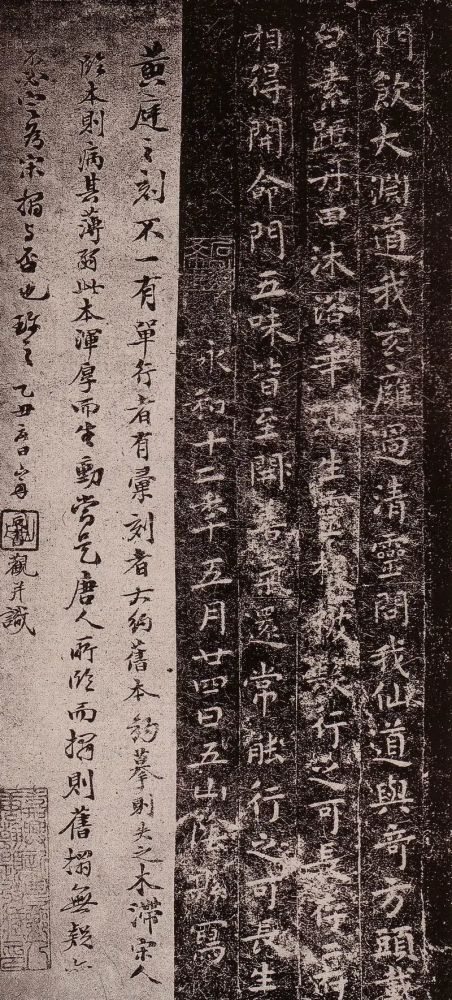 門飲大淵道我玄廱過清靈問我仙道與奇方頭載
白素距丹田沐浴華池生靈根被髮行之可長存二府
相得開命門五味皆至開善氣還常能行之可長生
永和十二年五月廿四日五山陰縣寫
黄庭之刻不一有單行者有彙刻者大約舊本鈎摹則失之木滯宋人
臨本則病其薄弱此本渾厚而生動當是唐人所臨而搨則舊搨無疑
宋搨与否也珍之 乙丑
觀并識